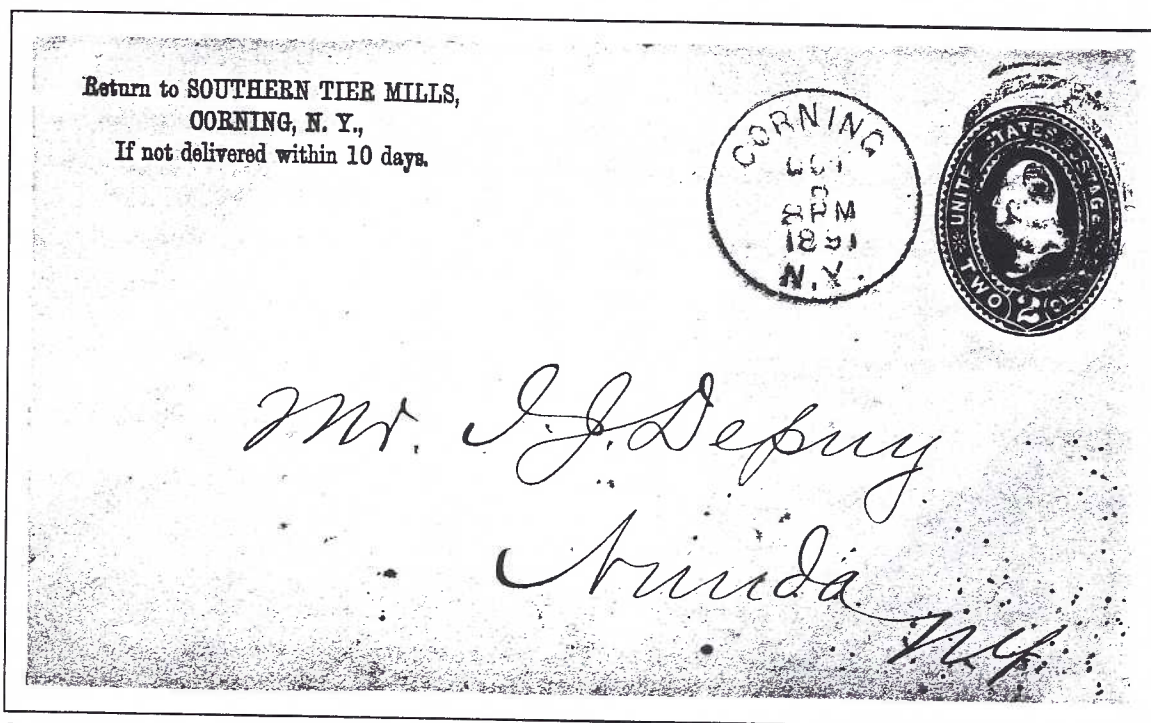 Return to SOUTHERN TIER MILLS,
CORNING, N. Y.,
If not delivered within 10 days.
CORNING
8 PM
1891
N.Y.
UNITED STATES POSTAGE
TWO 2
Mr. I. J. Depuy
Nunda
N.Y.